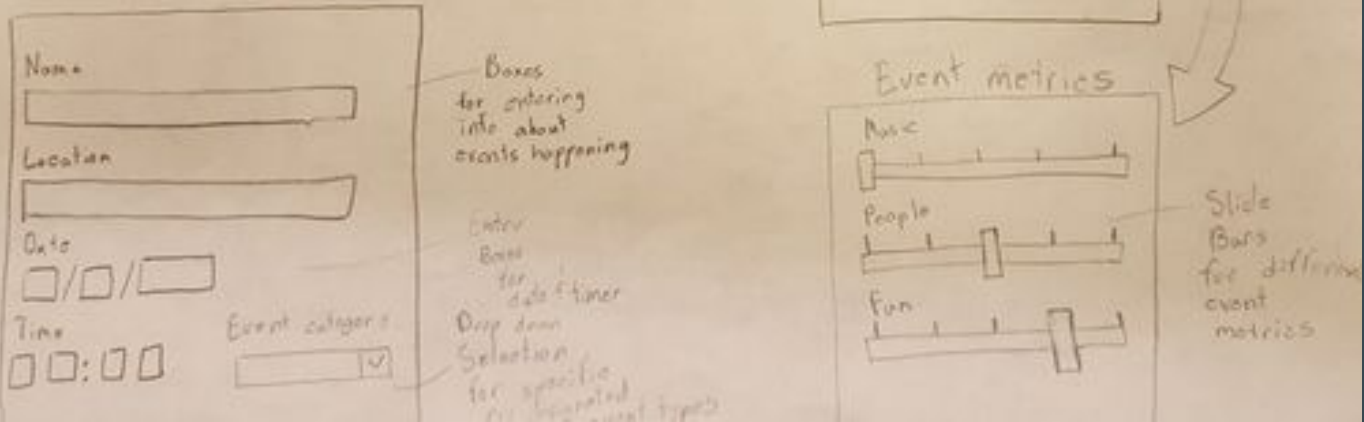 Name
Location
Date
/ /
Time
:
Event category
Boxes
for entering
info about
events happening
Entry
Boxes
for
date & timer
Drop down
Selection
for specific
event types
Event metrics
Music
People
Fun
Slide
Bars
for
event
metrics